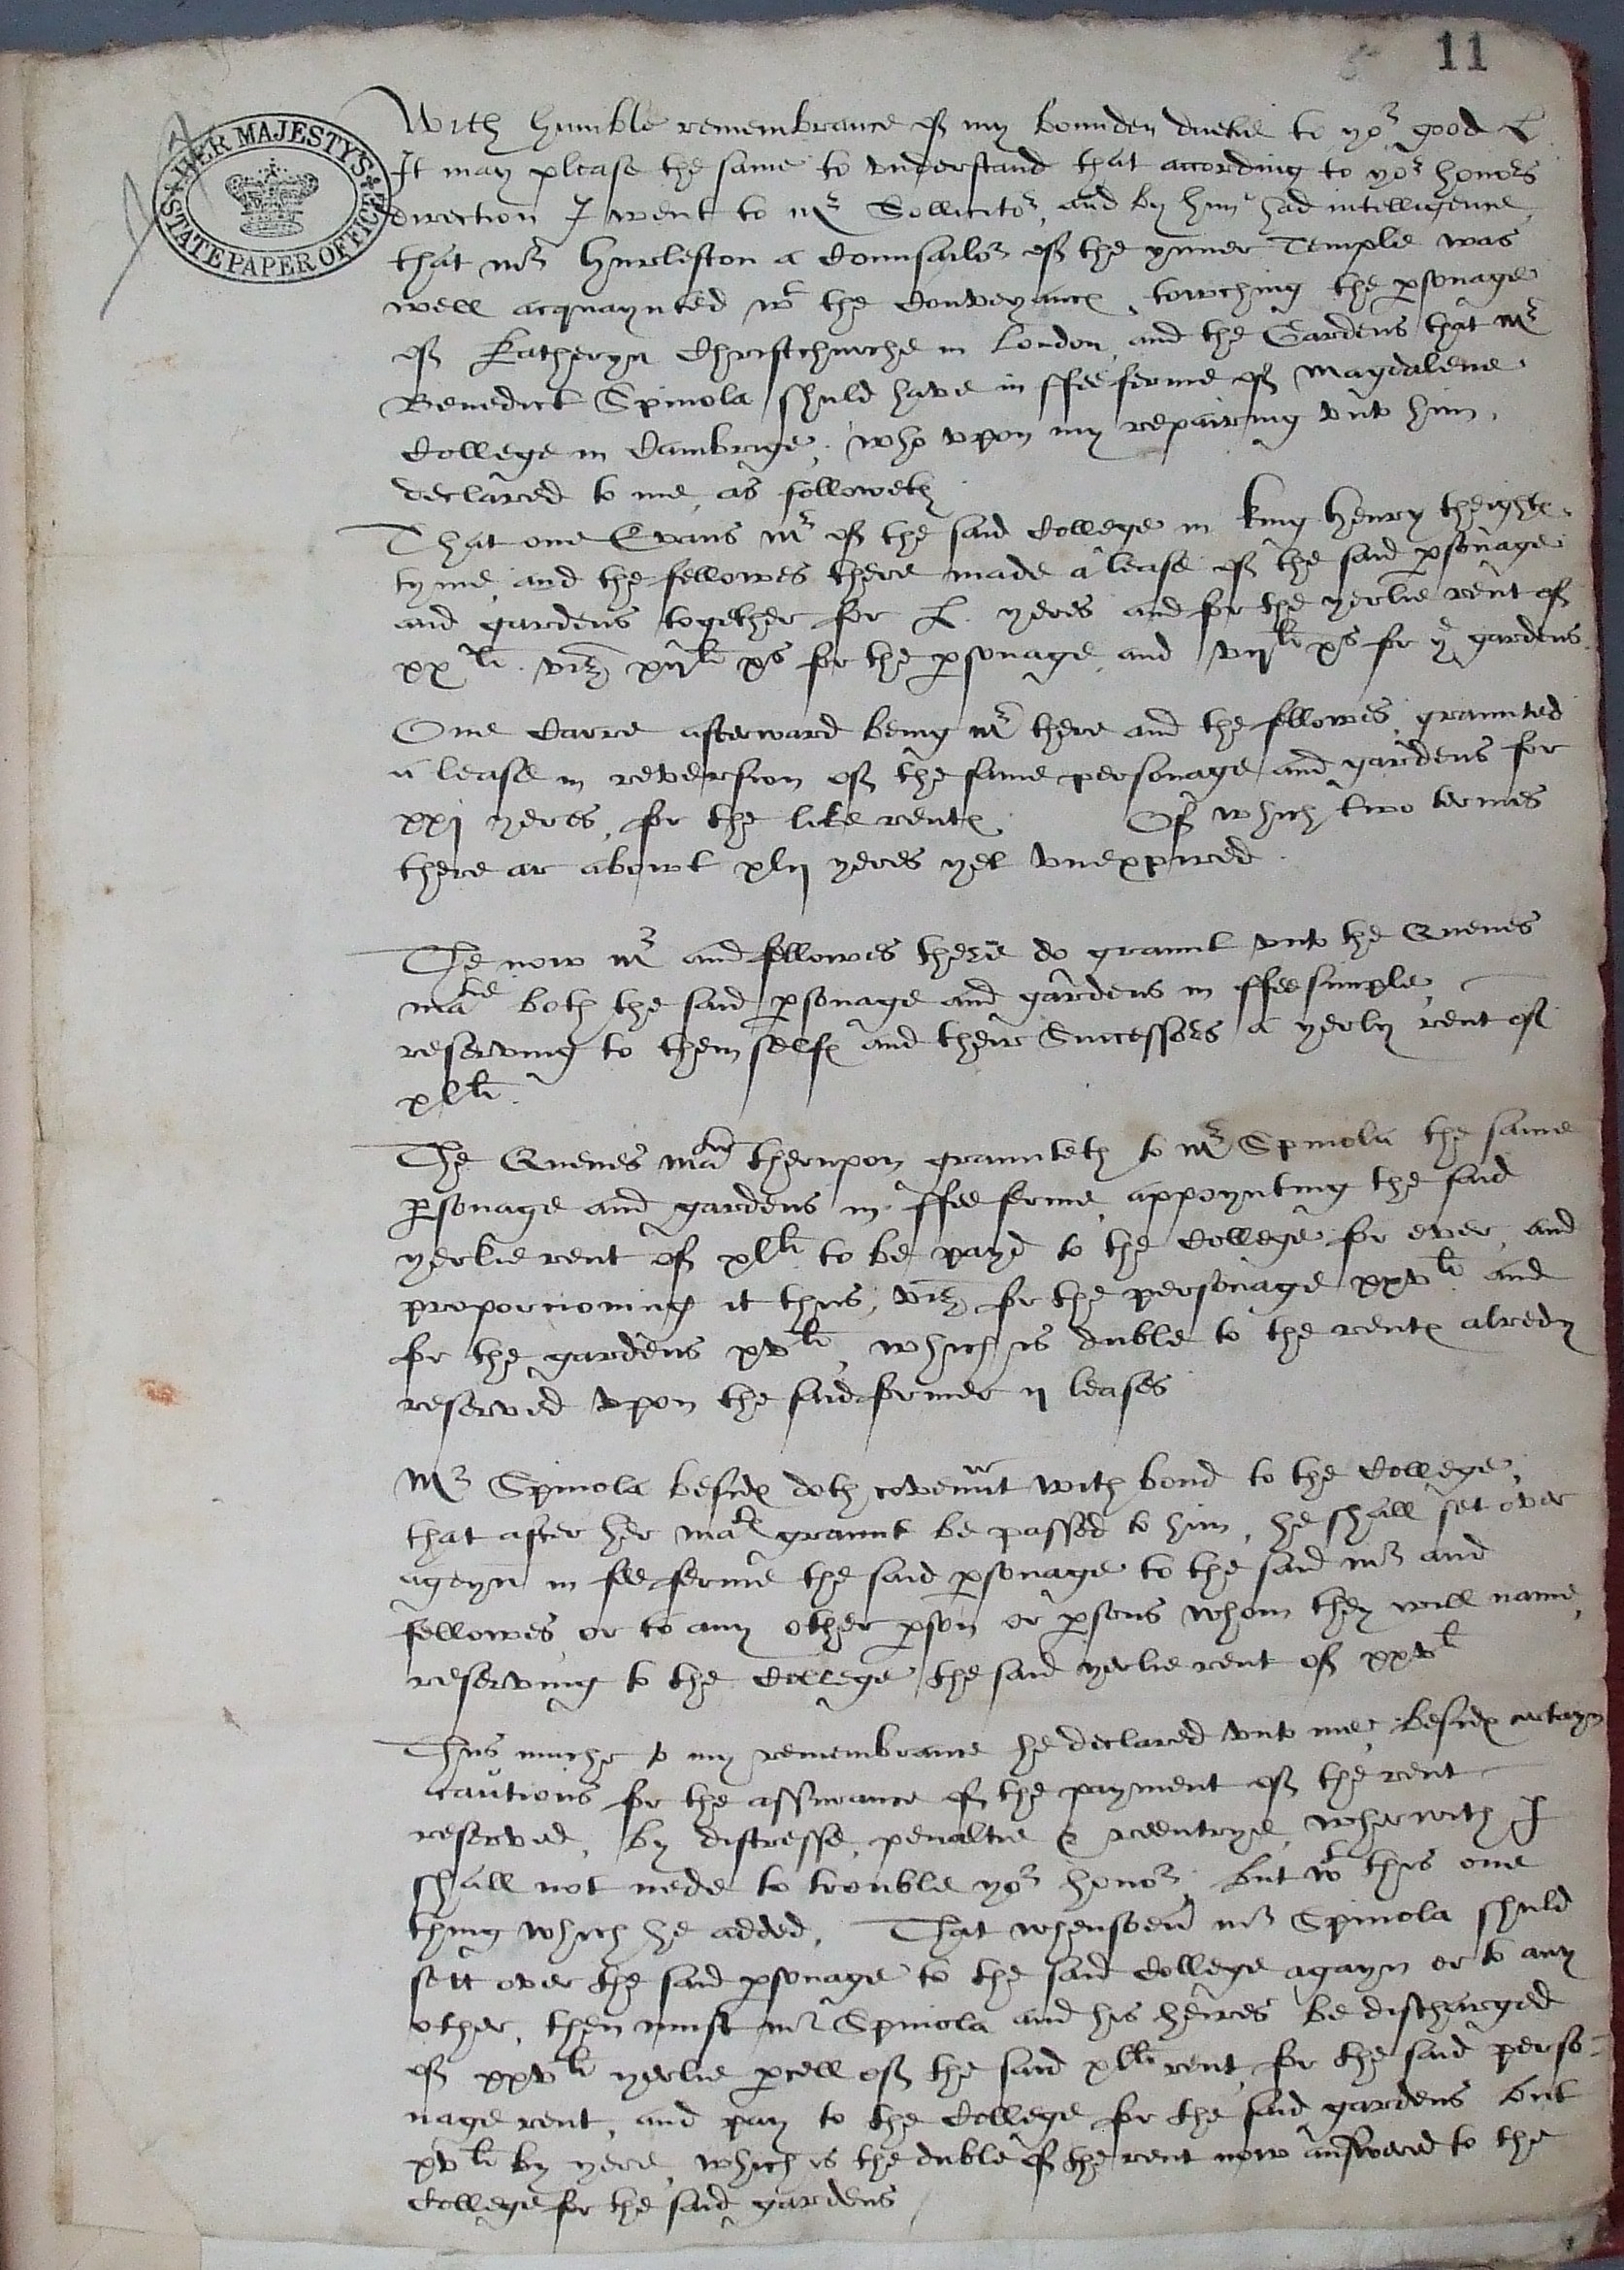 11
HER MAJESTY'S STATE PAPER OFFICE
With humble remembrance of my bounden duetie to yor good L.
It may please the same to vnderstand that according to yor honors
direction I went to Mr Sollicitor, and by him had intelligence,
that mr Hurleston a Counsailor of the ynner Temple was
well acquaynted wt the Conveyance, towching the psonage
of Katheryn Christchurche in London, and the Gardens that Mr
Benedict Spinola shuld have in ffee ferme of Magdalene
College in Cambrige, who vpon my repairing vnto him,
declared to me as followeth
That one Evans Mr of the said College in king Henry theights
tyme, and the fellowes there made a lease of the said psonage
and gardens together for L. yeres and for the yerlie rent of
xxli. viz xijli xs for the psonage, and vijli xs for ye gardens.
One Carre afterward being Mr there and the fellowes, graunted
a lease in reversion of the same personage and gardens for
xxj yeres, for the like rente. Of which two termes
there ar abowt xlij yeres yet vnexpired.
The now Mr and fellowes there do graunt vnto the Quenes
matie both the said psonage and gardens in ffee simple,
reserving to them selfe and their Successors a yerly rent of
xlli.
The Quenes matie therupon graunteth to Mr Spinola the same
psonage and gardens in ffee ferme, appoynting the said
yerlie rent of xlli to be payd to the College for ever, and
proporcioning it thus, viz for the personage xxvli and
for the gardens xvli, which is duble to the rente alredy
reserved vpon the said former ij leases
Mr Spinola beside doth covenant with bond to the College,
that after her mats graunt be passed to him, he shall set over
ageyn in fee ferme the said psonage to the said mr and
fellowes or to any other pson or psons whom they will name,
reserving to the College the said yerlie rent of xxvli
Thus muche to my remembrance he declared vnto me, beside certayn
cautions for the assurance of the payment of the rent
reserved, by distresse, penaltie & reentrye, wherwith I
shall not nede to trouble yor honor, but wt this one
thing which he added, That whensoeu mr Spinola shuld
sett over the said psonage to the said College agayn or to any
other, then must mr Spinola and his heires be discharged
of xxvli yerlie pcell of the said xlli rent, for the said perso-
nage rent, and pay to the College for the said gardens but
xvli by yere, which is the duble of the rent now answered to the
College for the said gardens